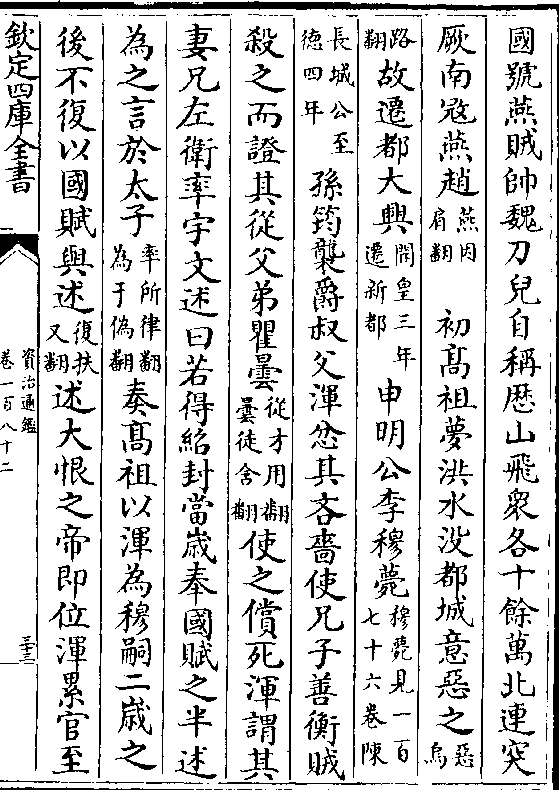 國號燕賊帥魏刀兒自稱歴山飛衆各十餘萬北連突
厥南冦燕趙燕因肩翻 初髙祖夢洪水没都城意惡之惡烏
路翻故遷都大興開皇三年遷新都 申明公李穆薨穆薨見一百七十六卷陳
長城公至德四年孫筠襲爵叔父渾忿其吝嗇使兄子善衡賊
殺之而證其從父弟瞿曇從才用翻曇徒含翻使之償死渾謂其
妻兄左衛率宇文述曰若得紹封當歳奉國賦之半述
為之言於太子率所律翻為于偽翻奏髙祖以渾為穆嗣二歳之
後不復以國賦與述復扶又翻述大恨之帝即位渾累官至
欽定四庫全書
資治通鑑
卷一百八十二
三十三